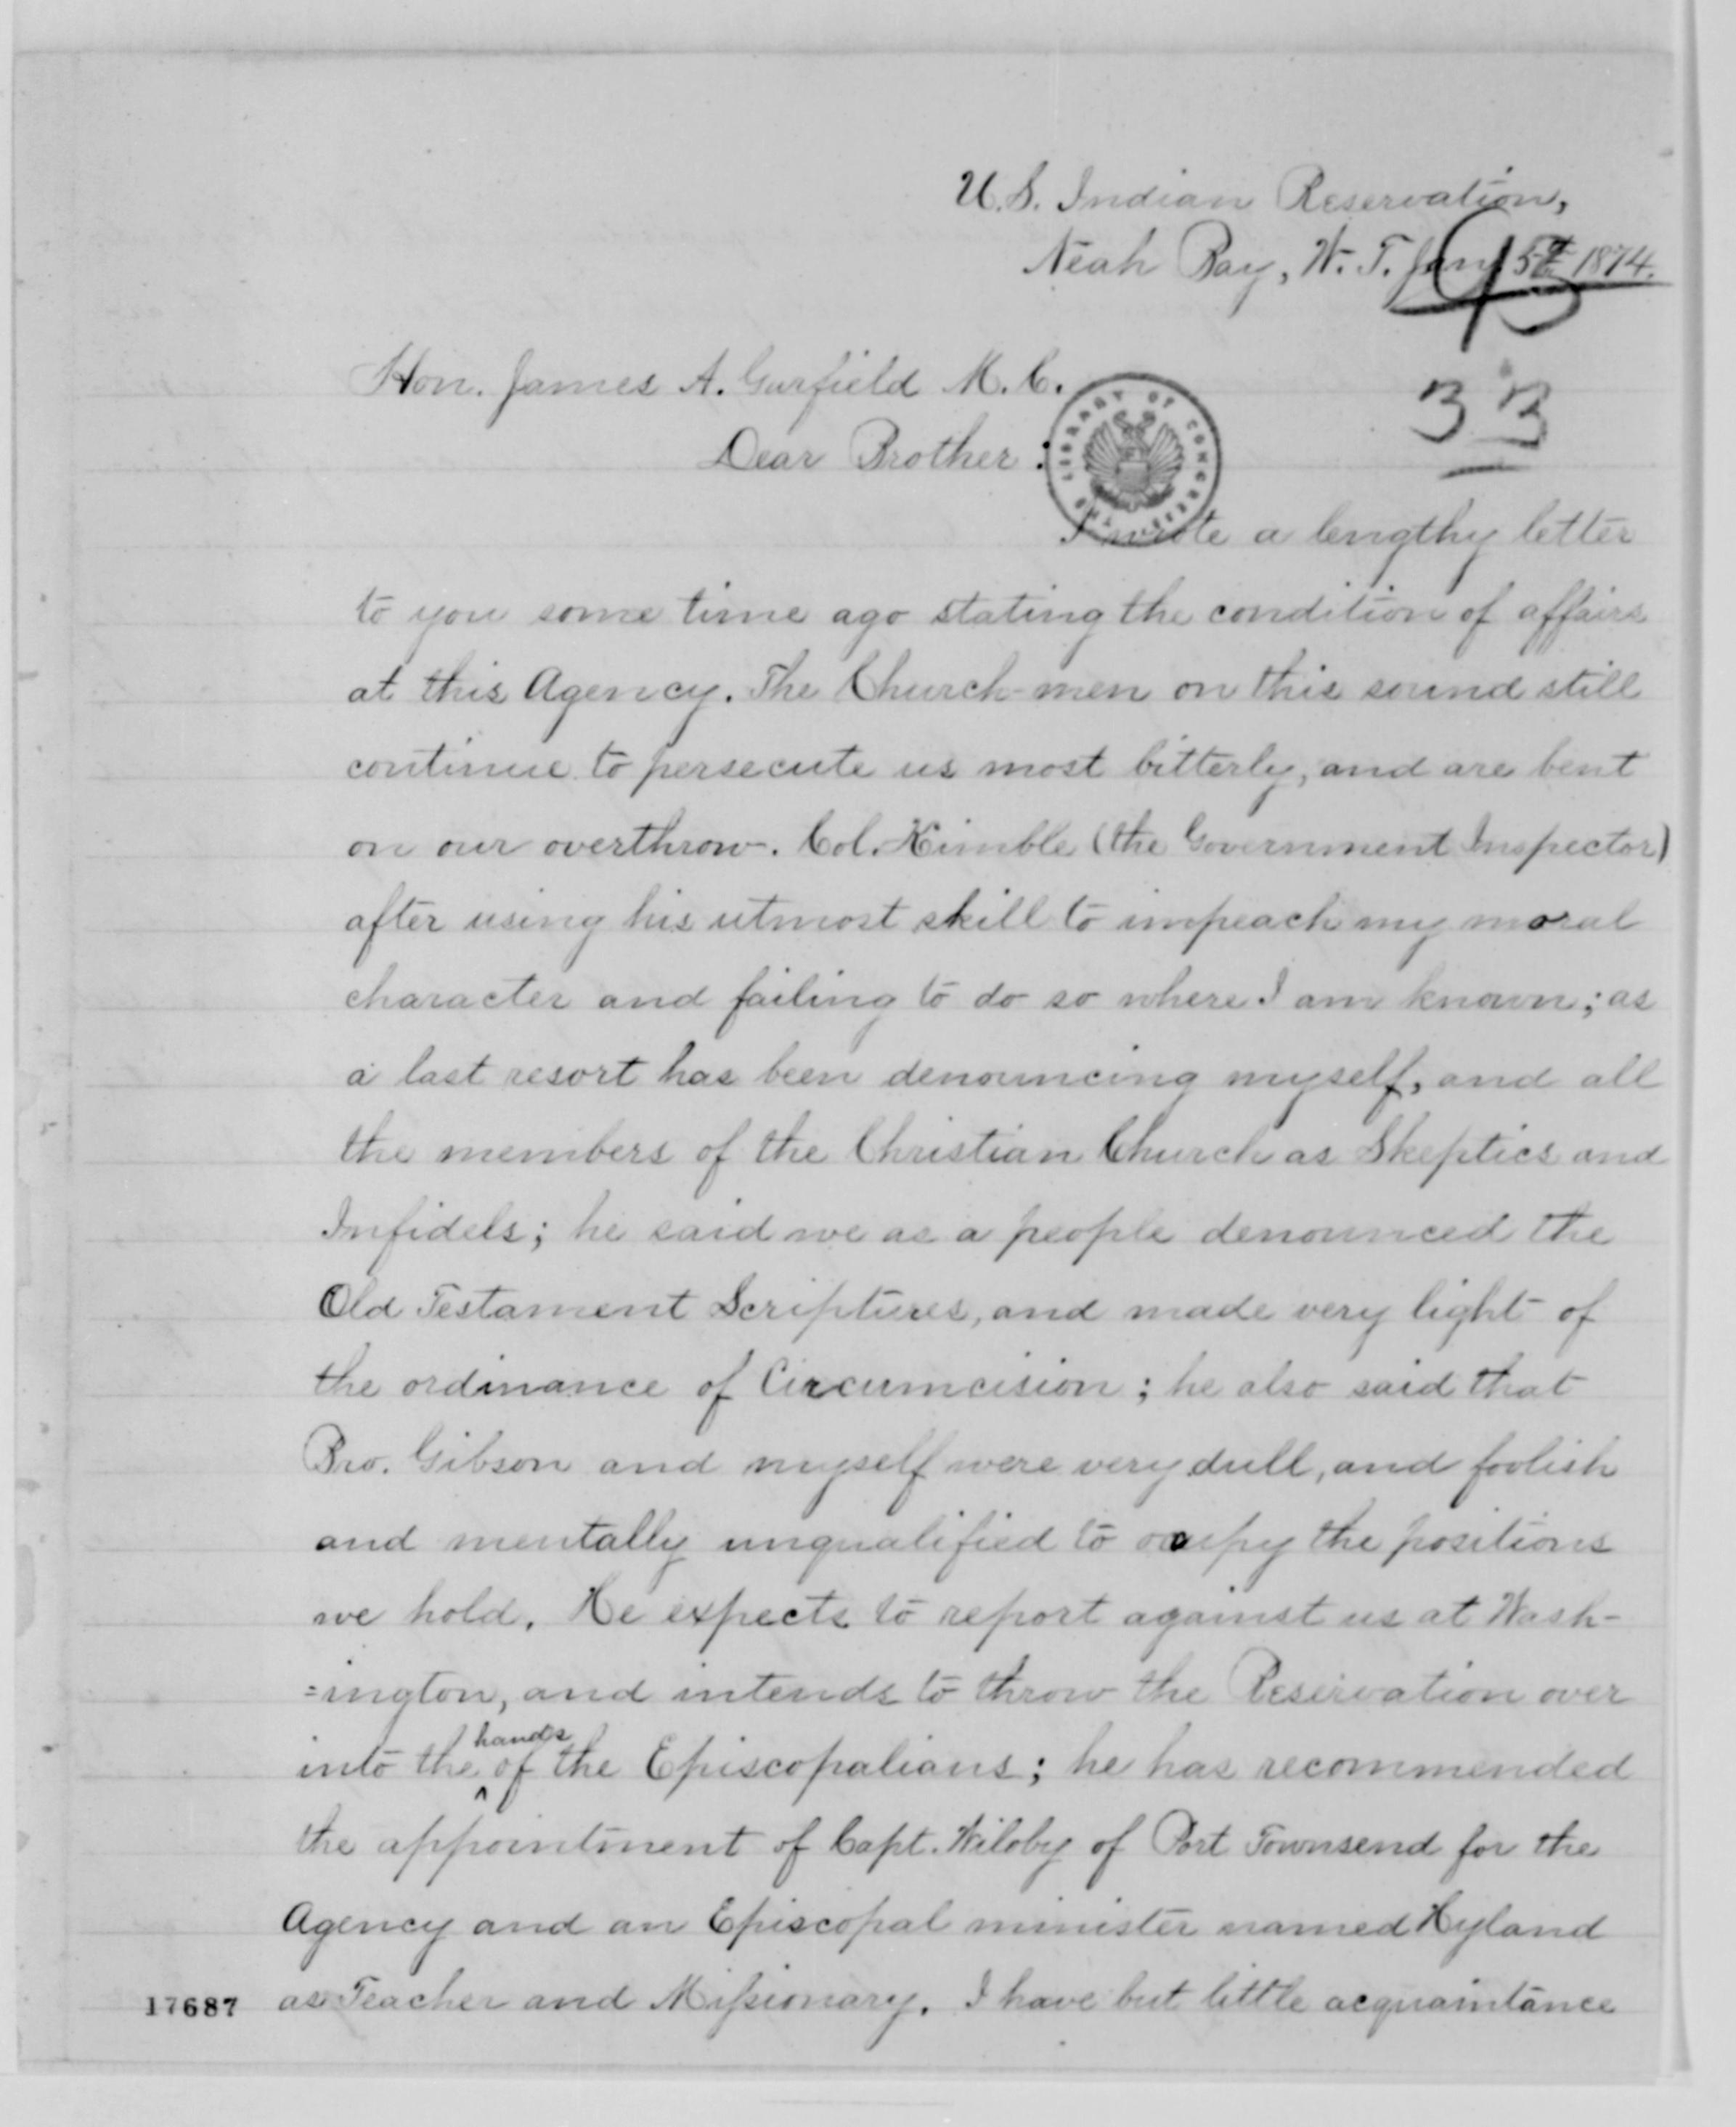 U.S. Indian Reservation,
Neah Bay, W. T. Jany 5th 1874.
93
33
Hon. James A. Garfield M. C.
Dear Brother:
LIBRARY OF CONGRESS
I wrote a lengthy letter
to you some time ago stating the condition of affairs
at this Agency. The Church-men on this sound still
continue to persecute us most bitterly, and are bent
on our overthrow. Col. Kimble (the Government Inspector)
after using his utmost skill to impeach my moral
character and failing to do so where I am known; as
a last resort has been denouncing myself, and all
the members of the Christian Church as Skeptics and
Infidels; he said we as a people denounced the
Old Testament Scriptures, and made very light of
the ordinance of Circumcision; he also said that
Bro. Gibson and myself were very dull, and foolish
and mentally unqualified to occupy the positions
we hold. He expects to report against us at Wash-
=ington, and intends to throw the Reservation over
into the hands of the Episcopalians; he has recommended
the appointment of Capt. Wiloby of Port Townsend for the
Agency and an Episcopal minister named Hyland
as Teacher and Missionary. I have but little acquaintance
17687